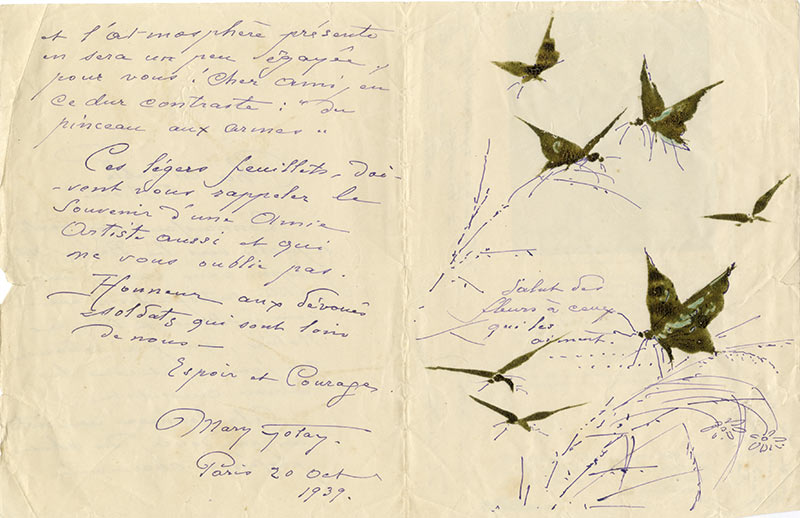 et l'atmosphère présente
en sera un peu égayée,
pour vous, cher ami, en
ce dur contraste : "du
pinceau aux armes"
Ces légers feuillets, doi-
-vent vous rappeler le
Souvenir d'une Amie
Artiste aussi et qui
ne vous oublie pas.
Honneur aux dévoués
soldats qui sont loin
de nous —
Espoir et Courage
Mary Golay.
Paris 20 Oct
1939.
Salut des
fleurs à ceux
qui les
aiment.